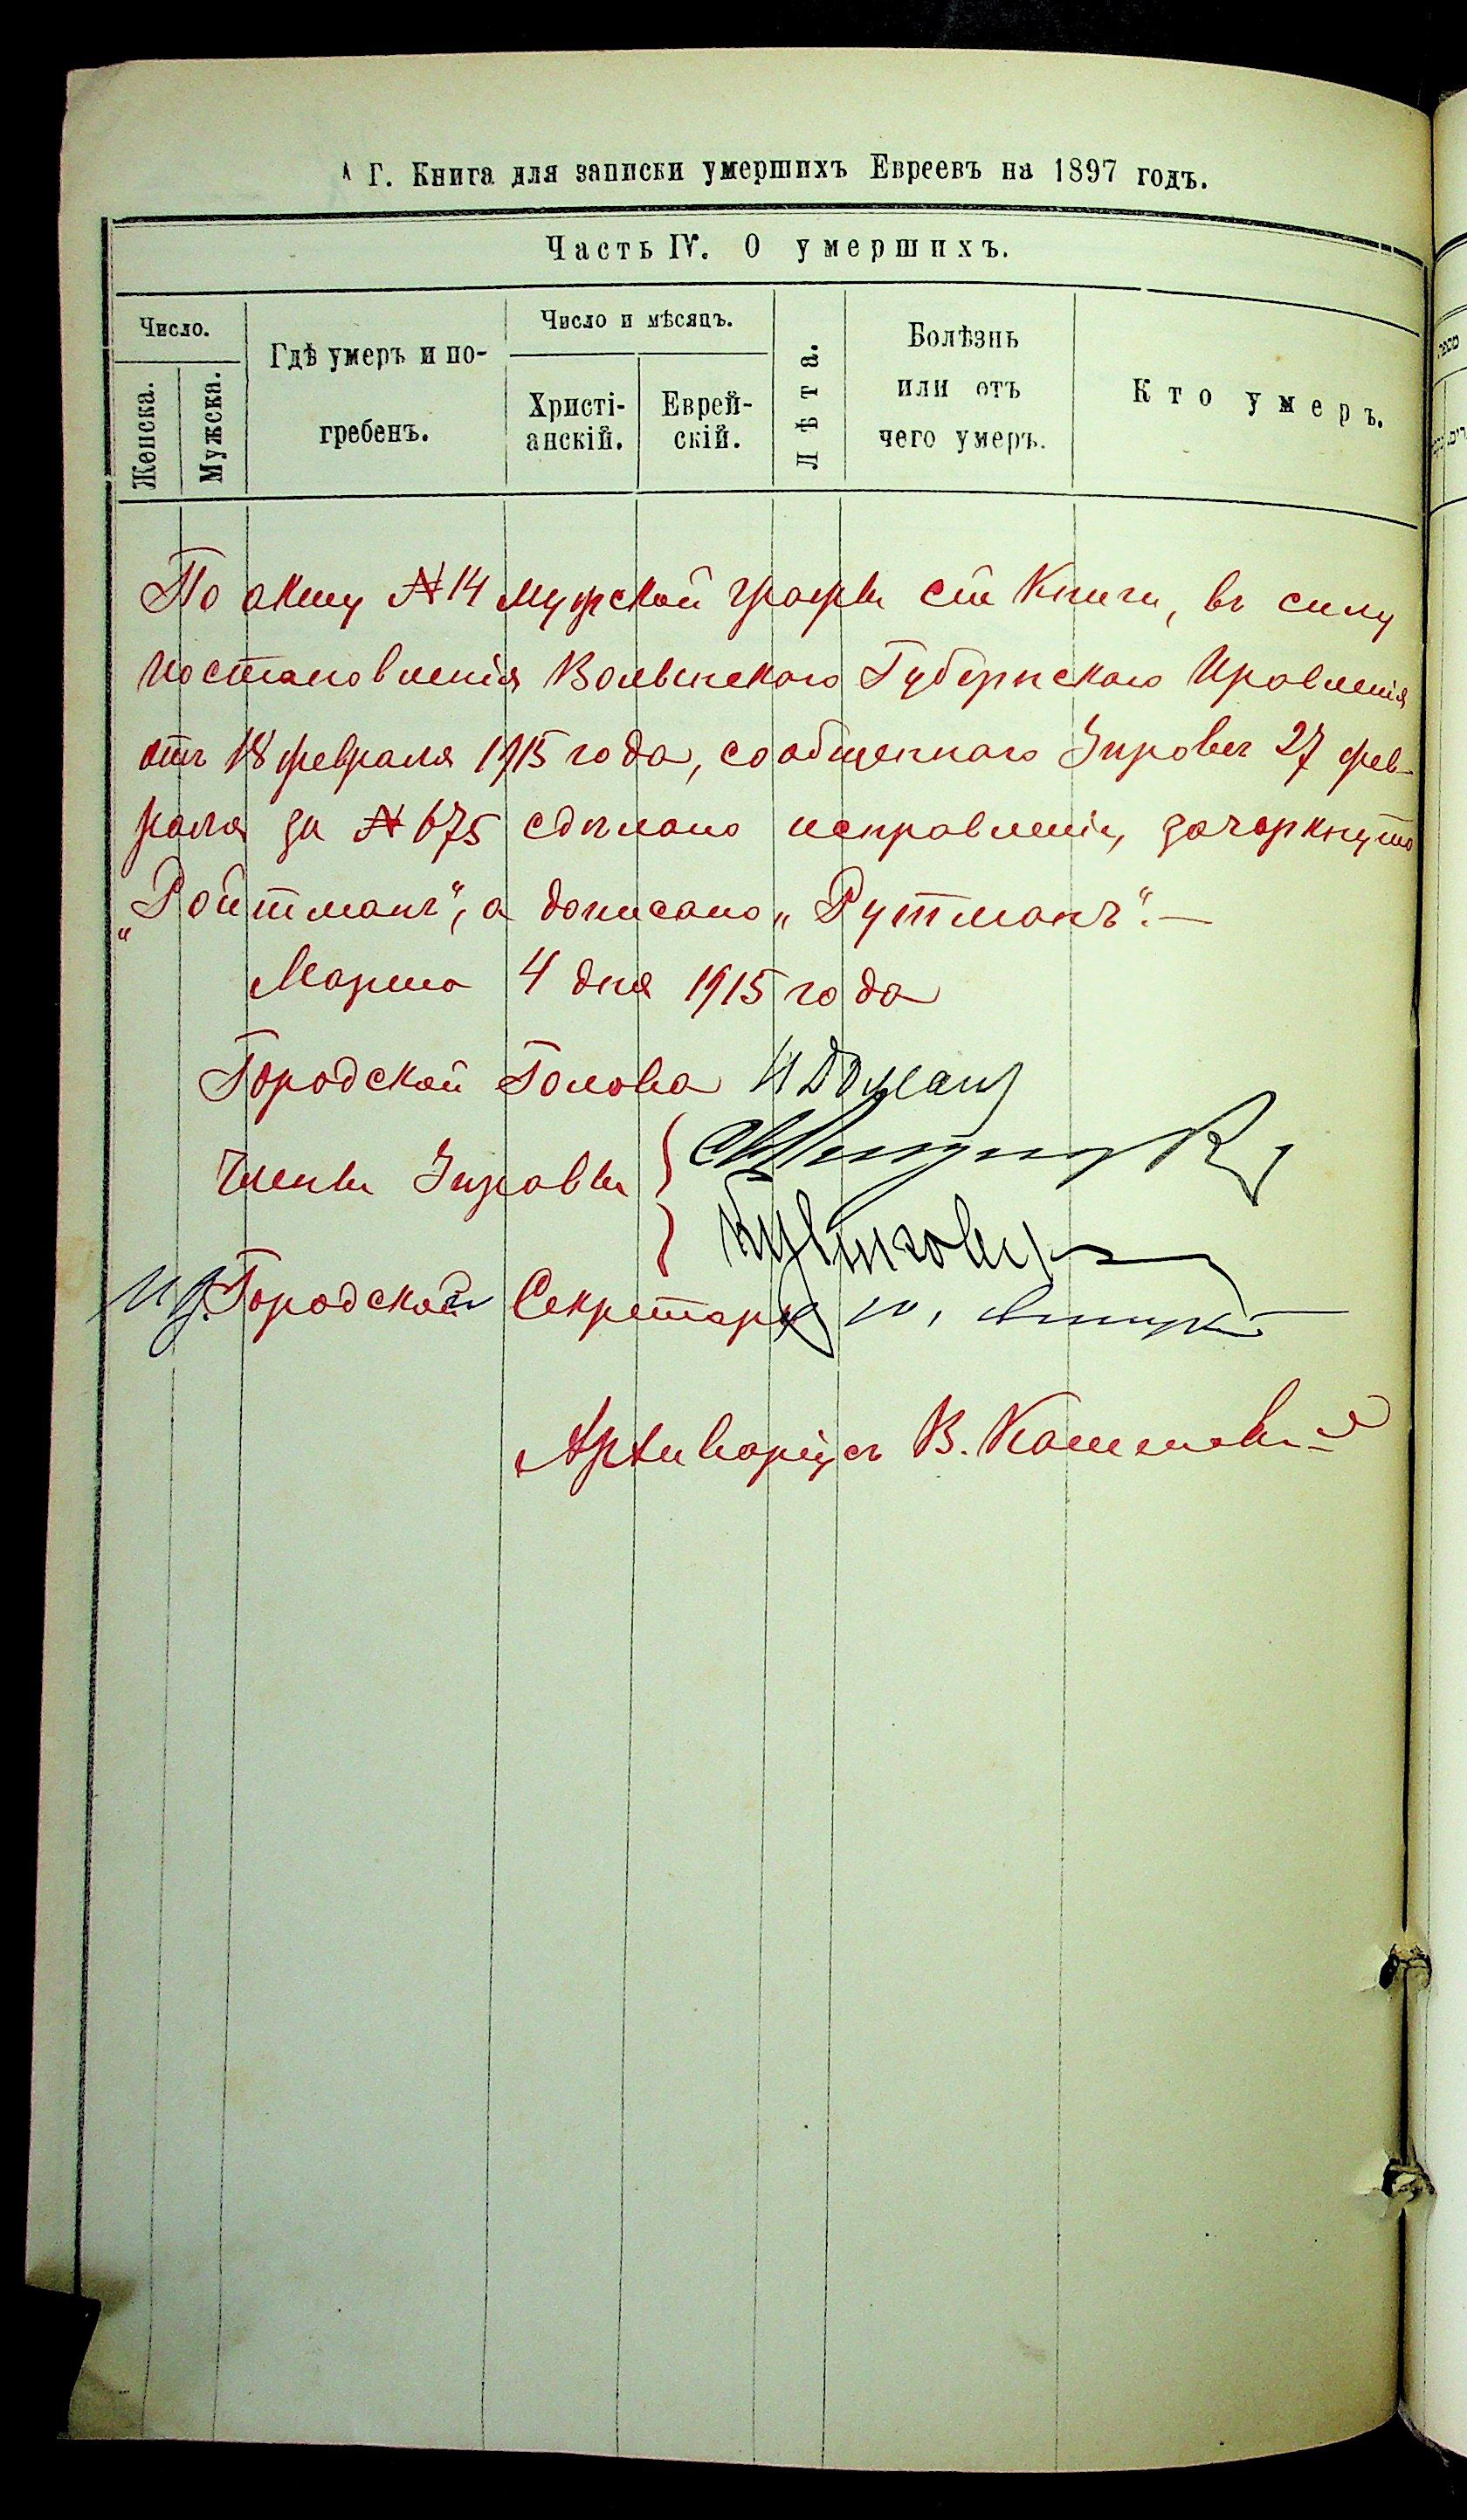 Г. Книга для записки умершихъ Евреевъ на 1897 годъ.
Часть IV. О умершихъ.
Число.
Женска.
Мужска.
Гдѣ умеръ и по-
гребенъ.
Число и мѣсяцъ.
Христі-
анскій.
Еврей-
скій.
Лѣта.
Болѣзнь
или отъ
чего умеръ.
Кто умеръ.
По акту № 14 мужской графы сей Книги, въ силу
постановленія Волынскаго Губернскаго Правленія
отъ 18 февраля 1915 года, сообщеннаго Управѣ 27 фев-
раля за № 675 сдѣлано исправленіе, зачеркнуто
„Ройтманъ“, а дописано „Рутманъ“.—
Марта 4 дня 1915 года
Городской Голова
Члены Управы
И д. Городского Секретаря
Архиваріусъ В.